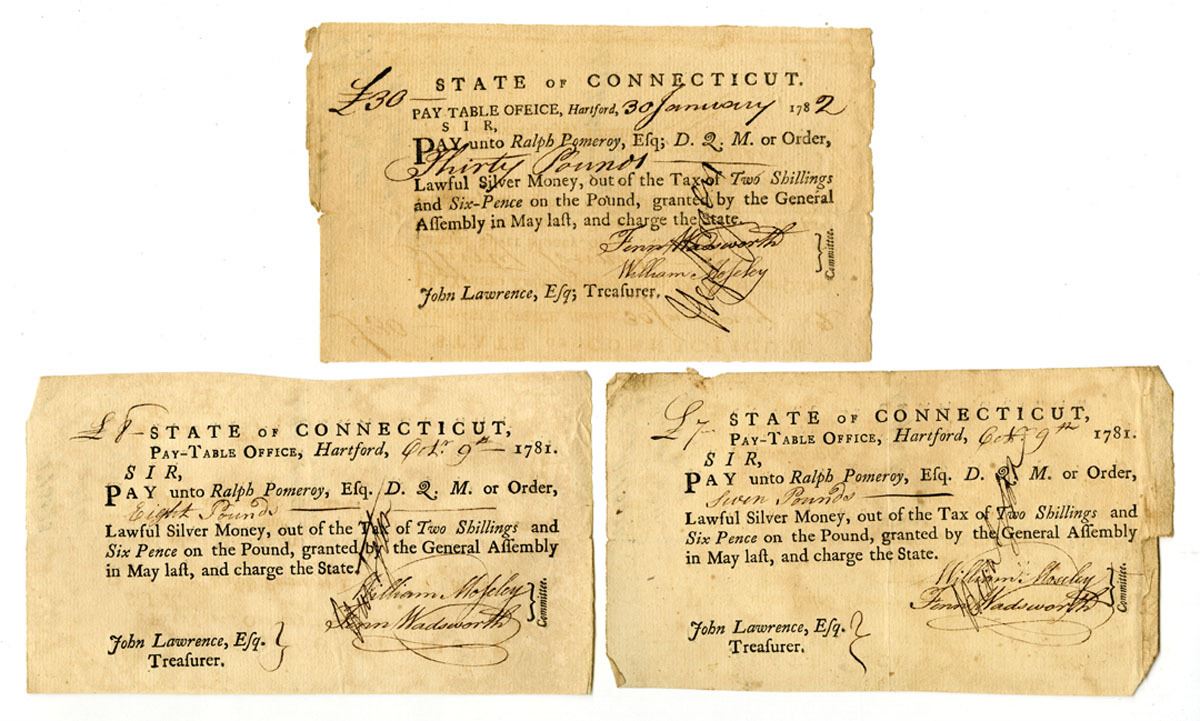 £30
STATE OF CONNECTICUT.
PAY TABLE OFEICE, Hartford, 30 January 1782
SIR,
PAY unto Ralph Pomeroy, Esq; D. Q. M. or Order,
Thirty Pounds
Lawful Silver Money, out of the Tax of Two Shillings
and Six-Pence on the Pound, granted by the General
Aſſembly in May laſt, and charge the State.
Fenn Wadsworth
William Moseley
Committee.
John Lawrence, Eſq; Treaſurer.
£8
STATE OF CONNECTICUT,
PAY-TABLE OFFICE, Hartford, Octr. 9th 1781.
SIR,
PAY unto Ralph Pomeroy, Esq. D. Q. M. or Order,
Eight Pounds
Lawful Silver Money, out of the Tax of Two Shillings and
Six Pence on the Pound, granted by the General Aſſembly
in May laſt, and charge the State.
William Moseley
Fenn Wadsworth
Committee.
John Lawrence, Eſq.
Treaſurer.
£7
STATE OF CONNECTICUT,
PAY-TABLE OFFICE, Hartford, Octr. 9th 1781.
SIR,
PAY unto Ralph Pomeroy, Esq. D. Q. M. or Order,
Seven Pounds
Lawful Silver Money, out of the Tax of Two Shillings and
Six Pence on the Pound, granted by the General Aſſembly
in May laſt, and charge the State.
William Moseley
Fenn Wadsworth
Committee.
John Lawrence, Eſq.
Treaſurer.